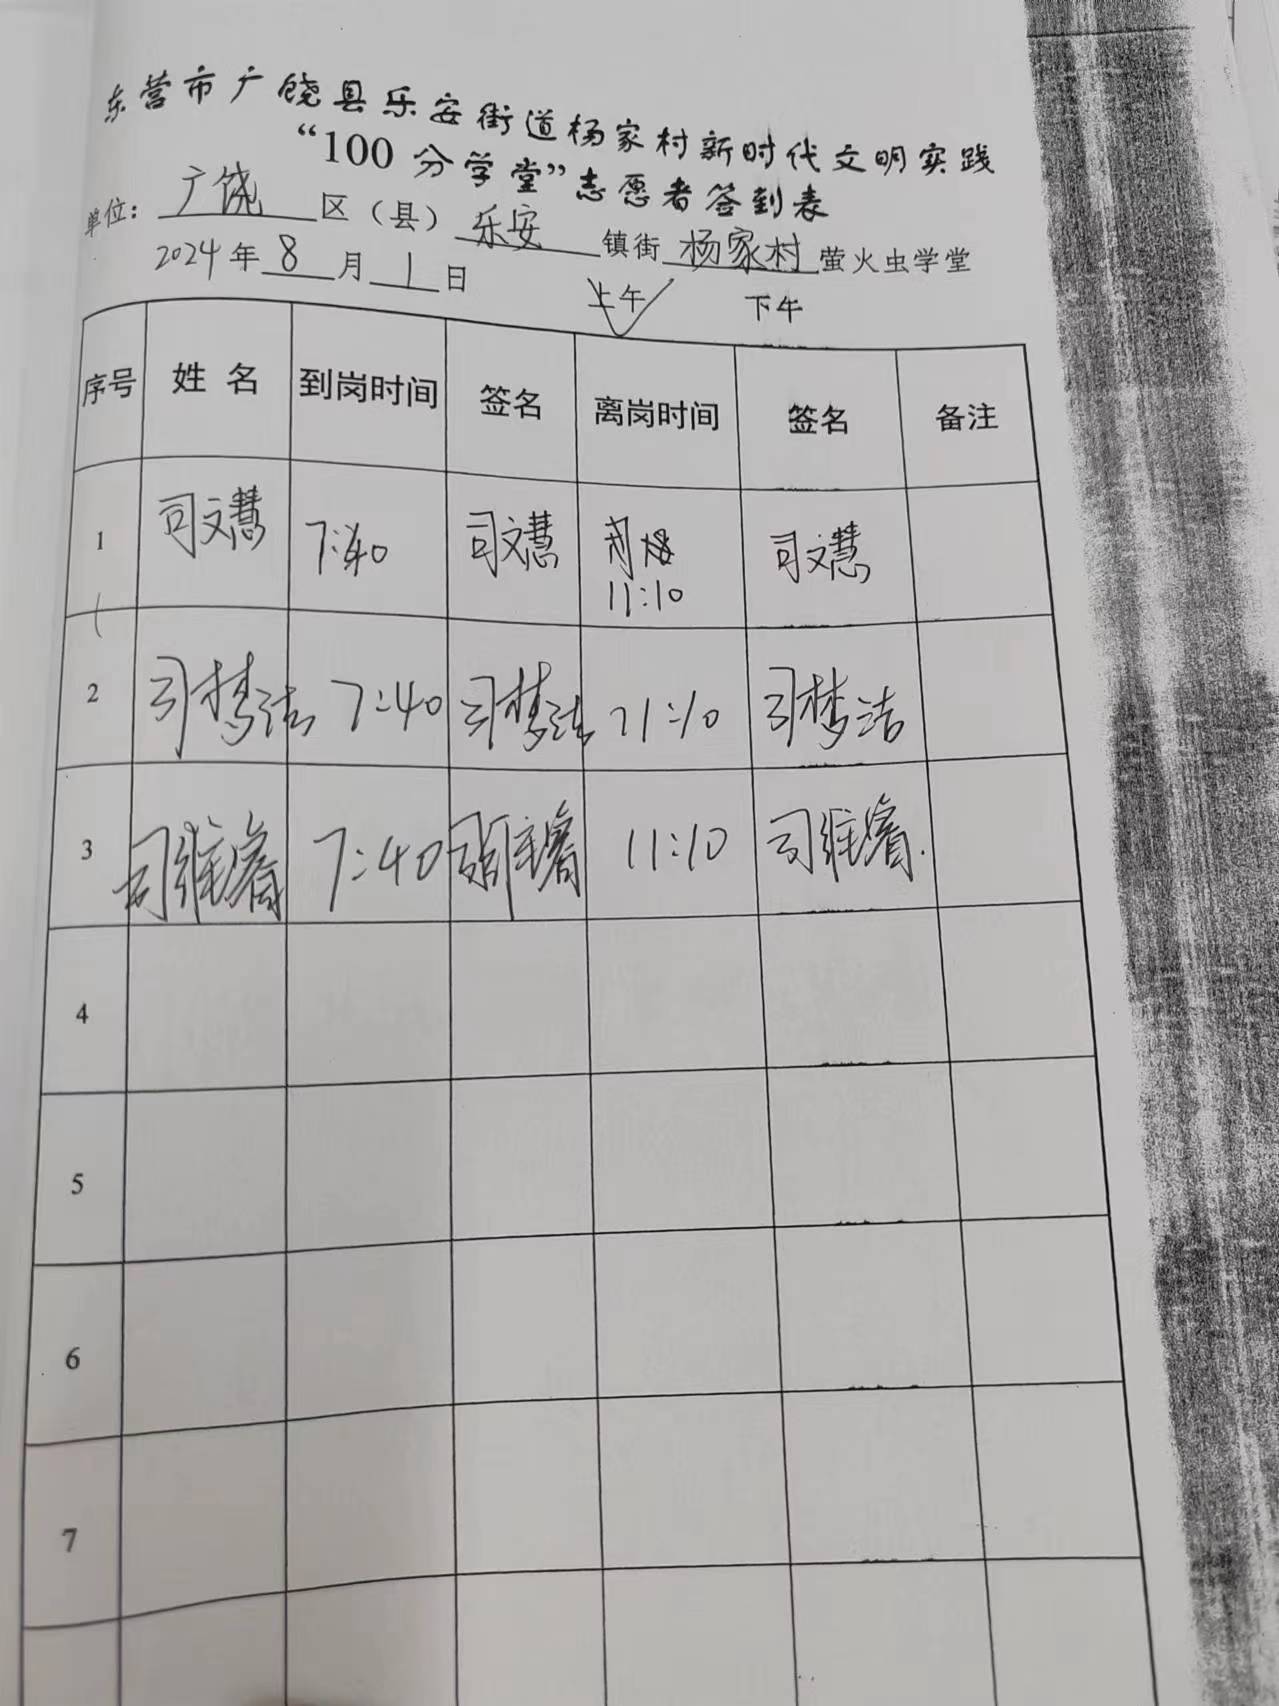 东营市广饶县乐安街道杨家村新时代文明实践
“100分学堂”志愿者签到表
单位：广饶区（县）乐安镇街杨家村萤火虫学堂
2024年8月1日 上午 下午
序号 姓名 到岗时间 签名 离岗时间 签名 备注
1 司文慧 7:40 司文慧 11:10 司文慧
2 司梦洁 7:40 司梦洁 11:10 司梦洁
3 司维睿 7:40 司维睿 11:10 司维睿
4
5
6
7